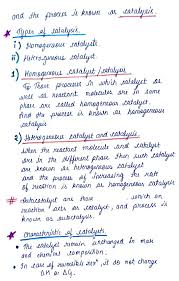 and the process is known as catalysis.
Types of catalysis
i) Homogenous catalysis
ii) Heterogenous catalyst
1) Homogenous catalyst / catalysis
These processes in which catalyst as
well as reactant molecules are in same
phase are called homogenous catalyst
And the process is known as homogenous
catalysis
2) Heterogenous catalyst and catalysis
When the reactant molecule and catalyst
are in the different phase then such catalyst
are known as heterogenous catalyst
and the process of increasing the rate
of reaction is known as homogenous catalysis
# Autocatalyst are those which on
reaction acts as catalyst, and process is
known as autocatalysis.
Characteristic of catalysts.
The catalyst remain unchanged in mass
and chemical composition.
In case of reversible rxn, it do not change
ΔH or ΔG.